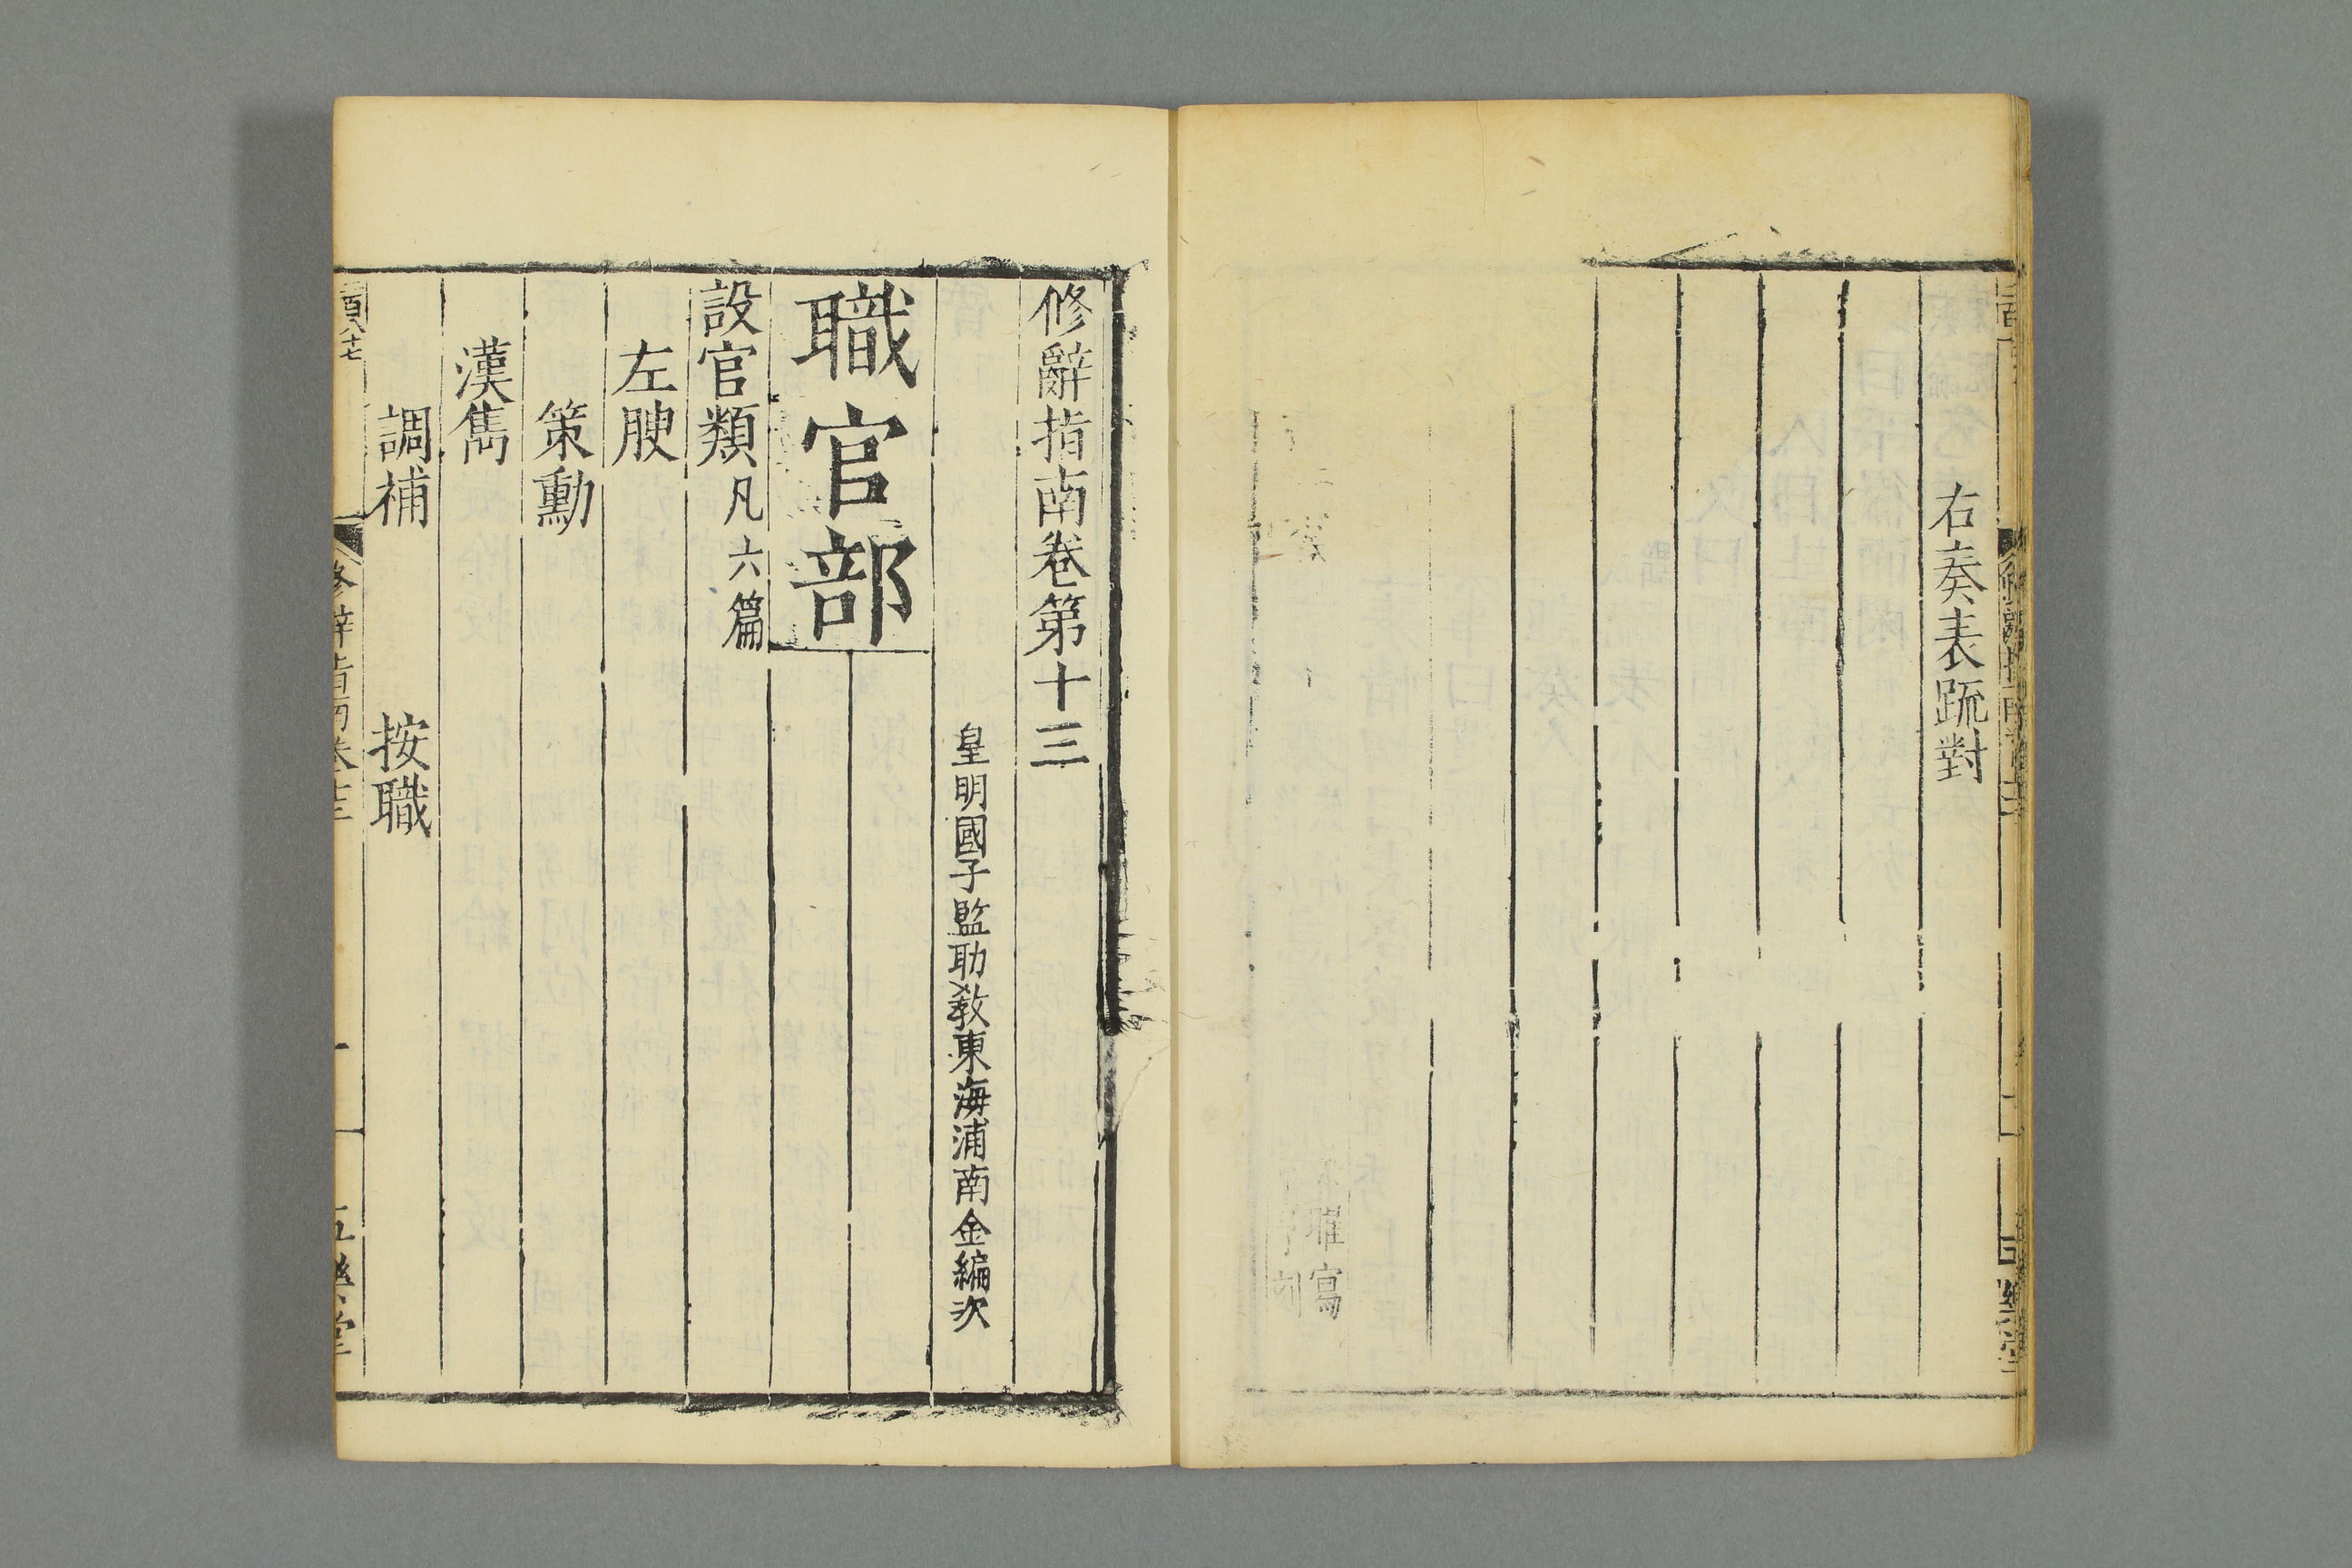 右奏表䟽對
修辭指南卷第十三
皇明國子監助敎東海浦南金編次
職官部
設官類凡六篇
左腴
策勳
漢雋
調補 按職
百八十七
修辭指南卷十三
五樂堂